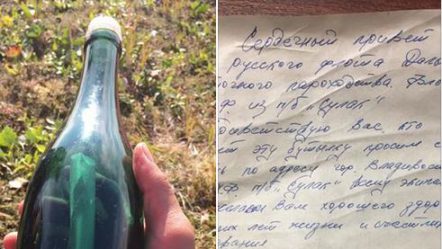 Сердечный привет
русского флота Даль
точного пароходства. Вла
из п/б „Сулак“
ветствую Вас, кто
ет эту бутылку просим с
по адресу гор. Владивос
п/б „Сулак“ всему экипа
Вам хорошего здор
их лет жизни и счастли